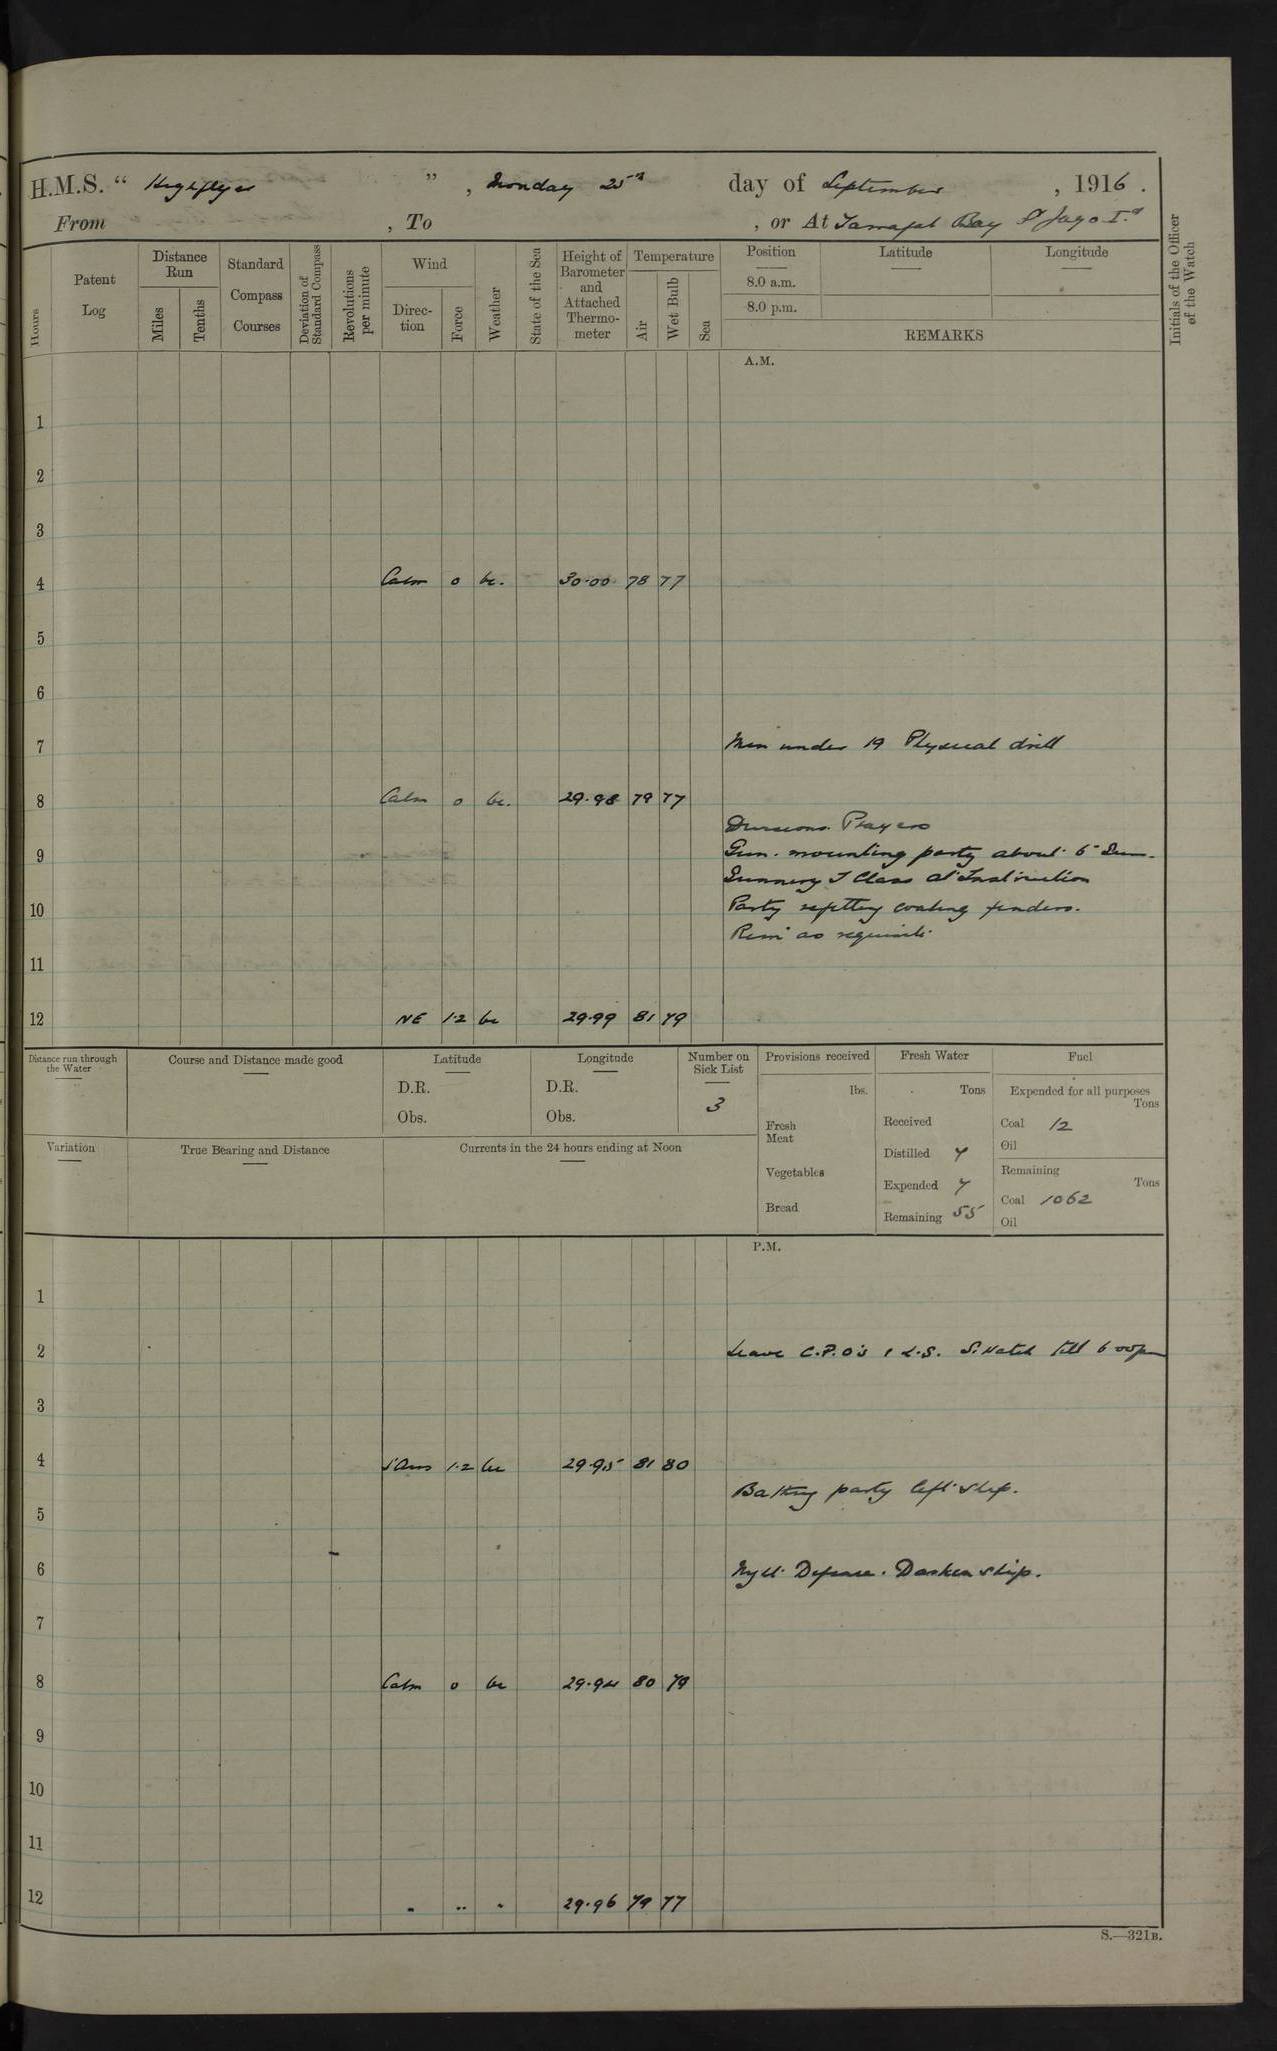 H.M.S. “ Highflyer ” , Monday 25th day of September , 1916 .
From , To , or At Tarrafal Bay St Jago Id
Initials of the Officer of the Watch
Hours
Patent Log
Distance Run
Miles
Tenths
Standard Compass Courses
Deviation of Standard Compass
Revolutions per minute
Wind
Direc-tion
Force
Weather
State of the Sea
Height of Barometer and Attached Thermo-meter
Temperature
Air
Wet Bulb
Sea
Position
8.0 a.m.
8.0 p.m.
Latitude
Longitude
REMARKS
A.M.
1
2
3
4 Calm 0 bc. 30·00 78 77
5
6
7 Men under 19 Physical drill
8 Calm 0 bc. 29·98 79 77
Divisions. Prayers
9 Gun. mounting party about 6" Gun.
Gunnery T Class at Instruction
10 Party refitting coaling fenders.
Remr as requisite
11
12 NE 1·2 bc 29·99 81 79
Distance run through the Water
Course and Distance made good
Latitude
D.R.
Obs.
Longitude
D.R.
Obs.
Number on Sick List
3
Variation
True Bearing and Distance
Currents in the 24 hours ending at Noon
Provisions received
lbs.
Fresh Meat
Vegetables
Bread
Fresh Water
Tons
Received
Distilled 7
Expended 7
Remaining 55
Fuel
Expended for all purposes
Tons
Coal 12
Oil
Remaining
Tons
Coal 1062
Oil
P.M.
1
2 Leave C.P.O's & L.S. S. Watch till 6 00pm
3
4 1·2 bc 29·95 81 80
Bathing party left ship.
5
6 Night Defence. Darken ship.
7
8 Calm 0 bc 29·94 80 79
9
10
11
12 " " " 29·96 79 77
S.—321B.